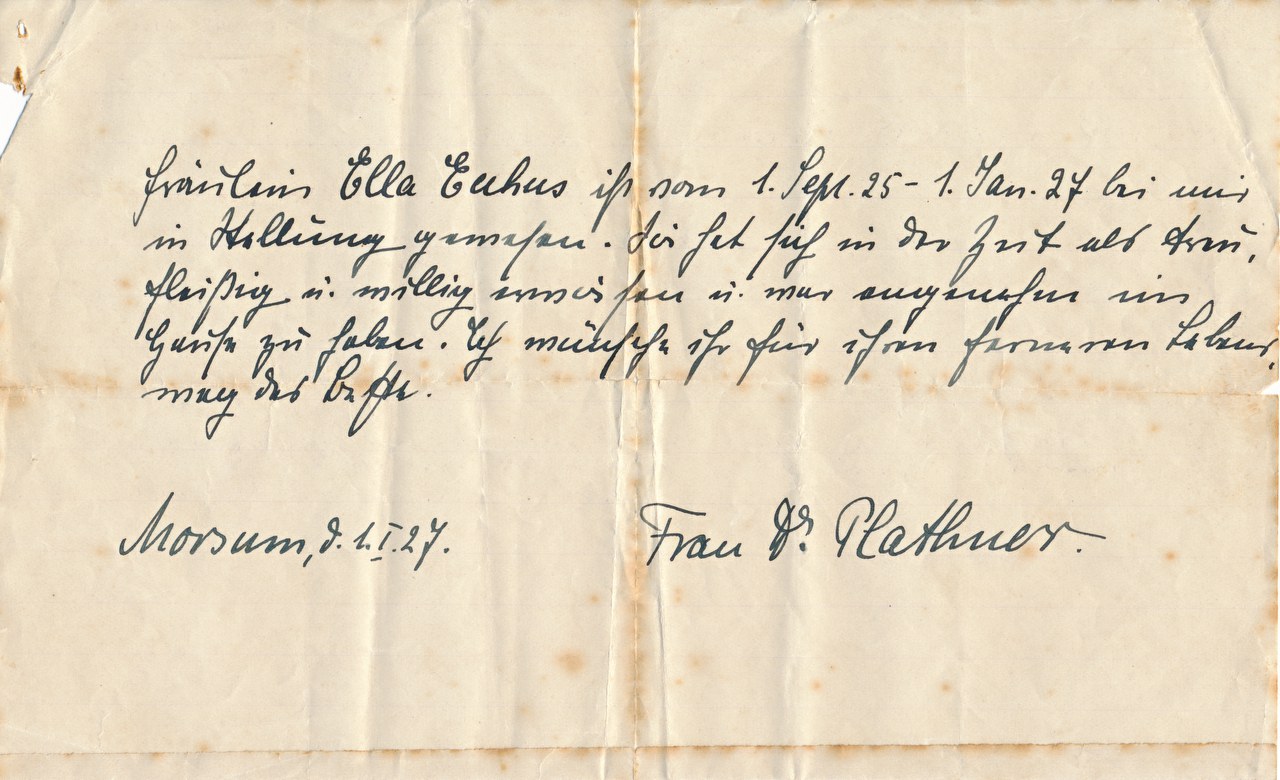 Fräulein Ella Euhus ist vom 1. Sept. 25 - 1. Jan. 27 bei mir
in Stellung gewesen. Sie hat sich in der Zeit als treu,
fleißig u. willig erwiesen u. war angenehm im
Hause zu haben. Ich wünsche ihr für ihren ferneren Lebens-
weg das Beste.
Morsum, d. 1. I. 27.
Frau Dr. Plathner.